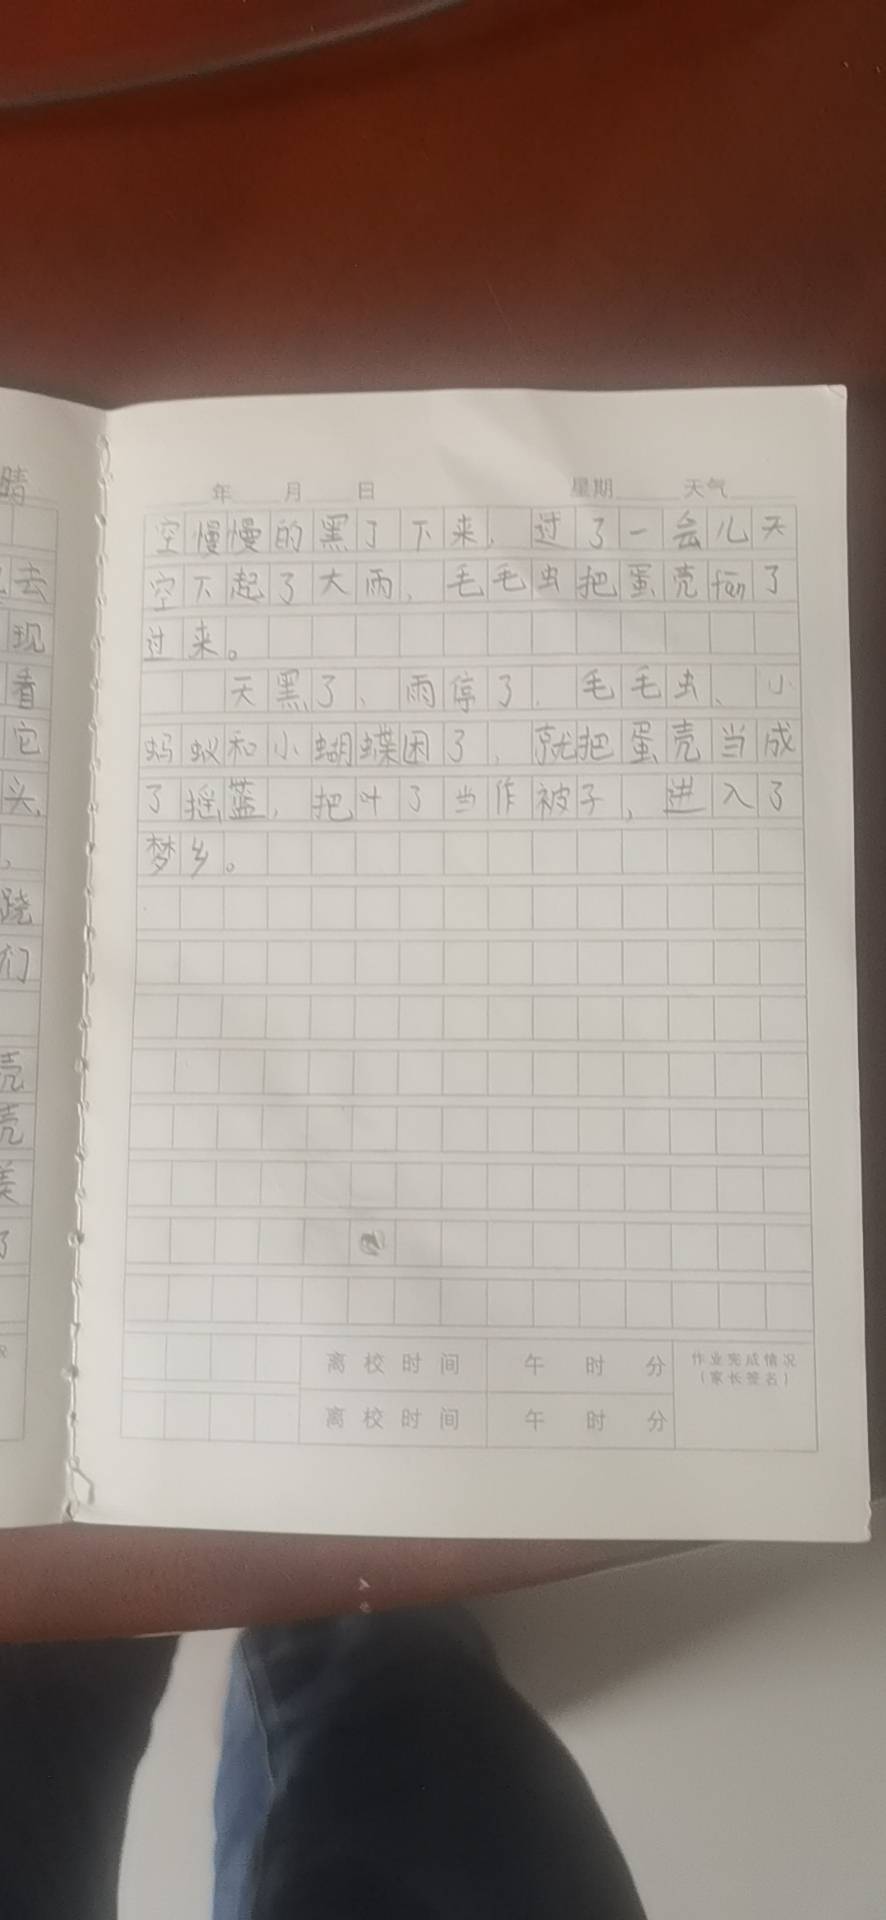 晴
去
现
看
它
头，
，
跷
们
壳
壳
美
了
年 月 日 星期 天气
空慢慢的黑了下来，过了一会儿天
空下起了大雨，毛毛虫把蛋壳fān了
过来。
天黑了、雨停了，毛毛虫、小
蚂蚁和小蝴蝶困了，就把蛋壳当成
了摇蓝，把叶了当作被子，进入了
梦乡。
离校时间 午 时 分 作业完成情况
（家长签名）
离校时间 午 时 分